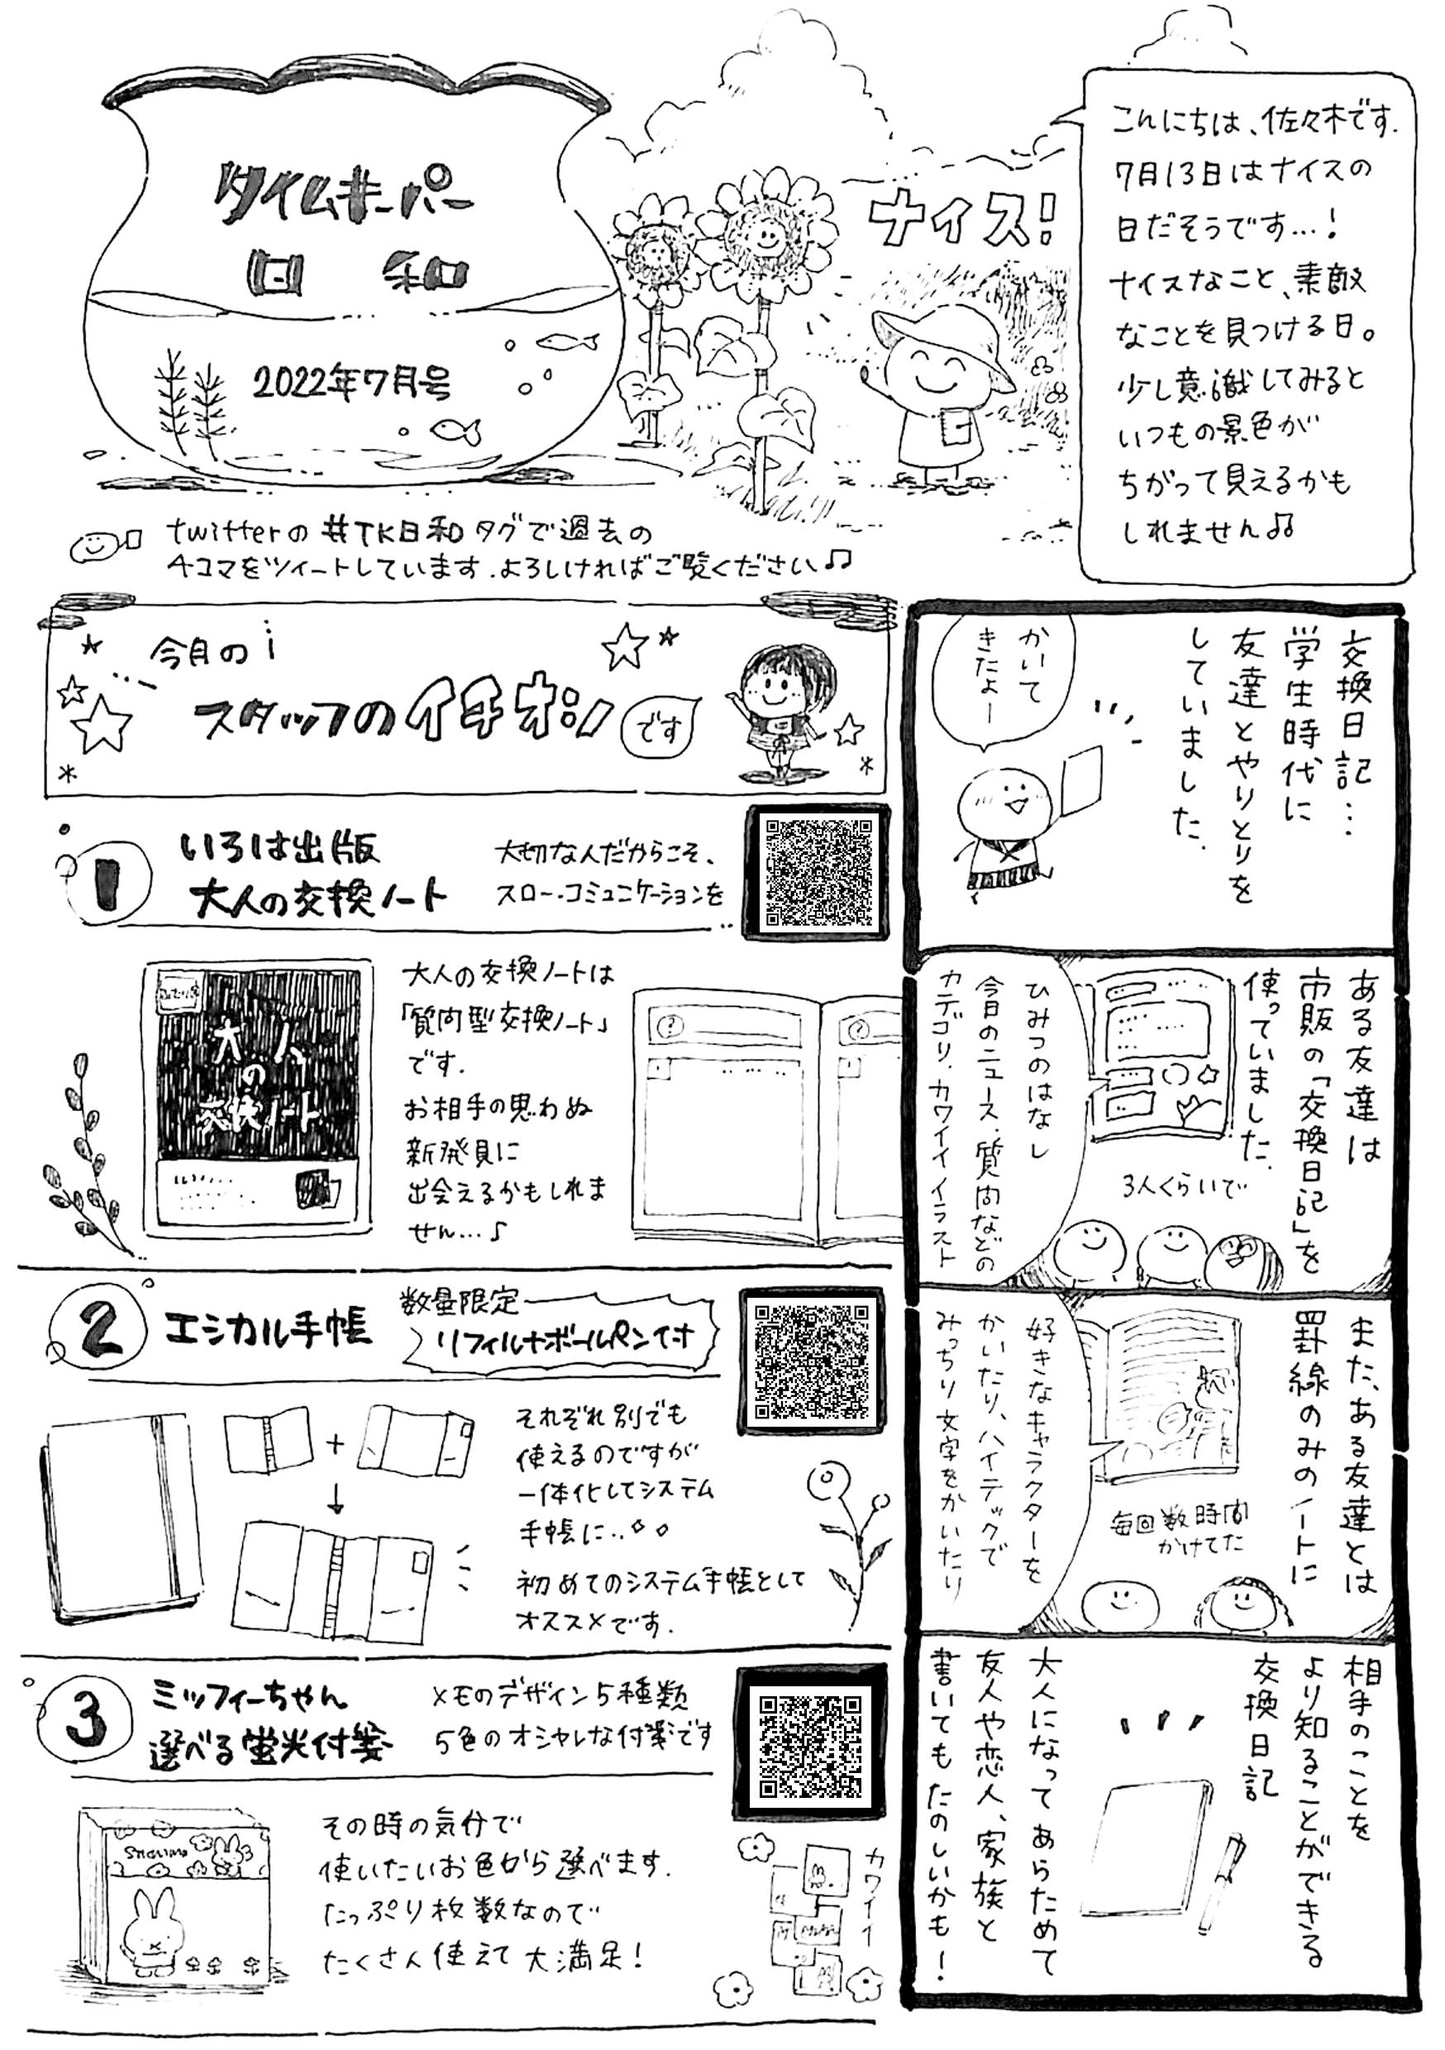 タイムキーパー
日和
2022年7月号
ナイス!
こんにちは、佐々木です.
7月13日はナイスの
日だそうです…!
ナイスなこと、素敵
なことを見つける日。
少し意識してみると
いつもの景色が
ちがって見えるかも
しれません♫
twitterの #TK日和 タグで過去の
4コマをツイートしています.よろしければご覧ください♫
今月の
スタッフのイチオシ
です
1
いろは出版
大人の交換ノート
大切な人だからこそ、
スロー・コミュニケーションを
大人の交換ノート
大人の交換ノートは
「質問型交換ノート」
です.
お相手の思わぬ
新発見に
出会えるかもしれま
せん…♪
2
エシカル手帳
数量限定
リフィル+ボールペン付
それぞれ別でも
使えるのですが
一体化してシステム
手帳に..
初めてのシステム手帳として
オススメです.
3
ミッフィーちゃん
選べる蛍光付箋
メモのデザイン5種類
5色のオシャレな付箋です
その時の気分で
使いたいお色から選べます.
たっぷり枚数なので
たくさん使えて大満足!
カワイイ
交換日記…
学生時代に
友達とやりとりを
していました.
かいて
きたよー
ある友達は
市販の「交換日記」を
使っていました.
3人くらいで
ひみつのはなし
今日のニュース.質問などの
カテゴリ.カワイイイラスト
また、ある友達とは
罫線のみのノートに
毎回数時間
かけてた
好きなキャラクターを
かいたり、ハイテックで
みっちり文字をかいたり
相手のことを
より知ることができる
交換日記
大人になってあらためて
友人や恋人、家族と
書いてもたのしいかも!